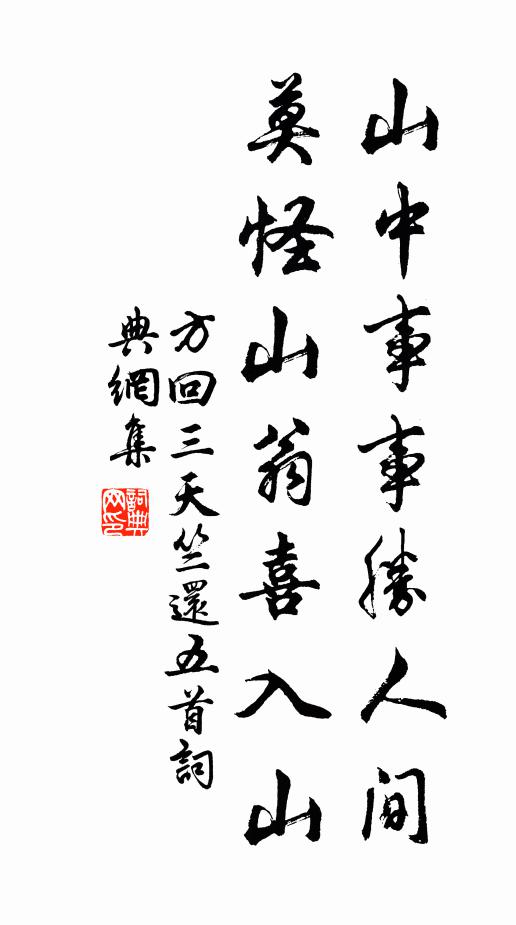 山中事事勝人间
莫怪山翁喜入山
方回三天竺還五首詞
典網集
詞典网印